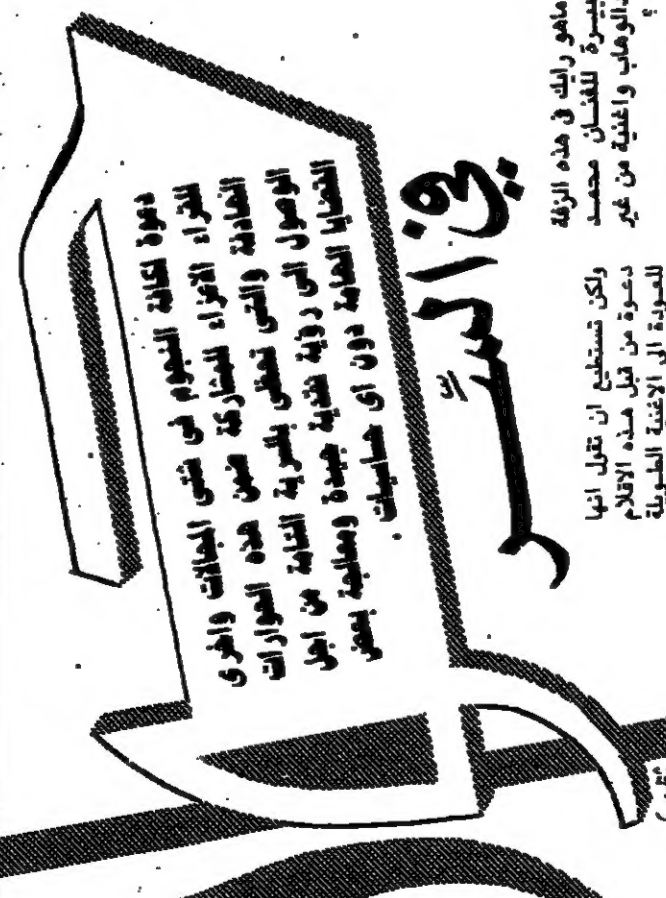 دعوة لكافة النجوم في شتى المجالات واخرى
للقراء الاعزاء للمشاركة ضمن هذه الحوارات
الهادفة والتي تحظى بالحرية التامة من اجل
الوصول الى رؤية نقدية جيدة ومعالجة بعض
القضايا الهامة دون اى حساسيات .
في السّر
ماهو رايك في هذه الزفة
للفنان محمد
واغنية من غير
ولكن نستطيع ان نقول انها
دعوة من قبل هذه الاقلام
للعودة الى الاغنية الطويلة